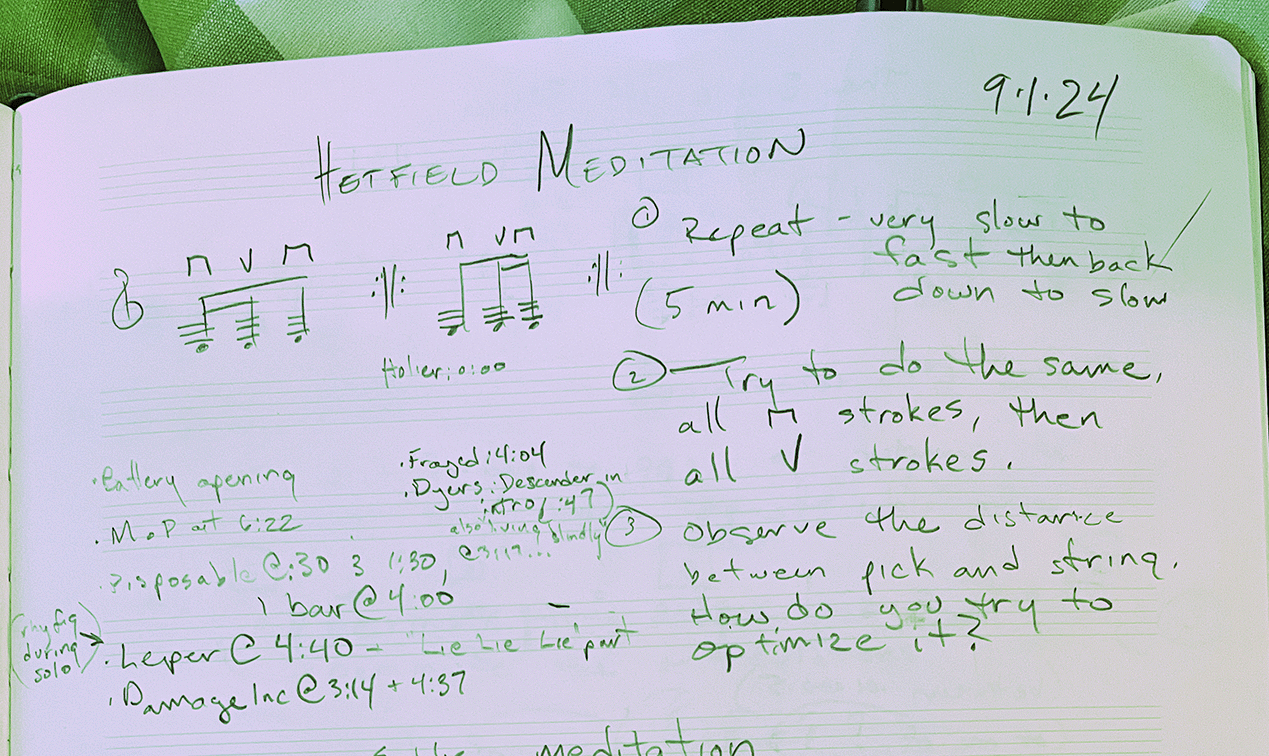 9.1.24
HETFIELD MEDITATION
① Repeat - very slow to
fast then back
down to slow
(5 min)
Holier: 0:00
② Try to do the same,
all ⊓ strokes, then
all V strokes.
③ Observe the distance
between pick and string.
How do you try to
optimize it?
· Battery opening
· M.o.P at 6:22
· Disposable @ :30 & 1:30, @3:19...
1 bar @ 4:00
· Frayed: 4:04
· Dyers: Descender in
intro, :47)
also "living blindly"
(rhy fig
during
solo)
· Leper @ 4:40 - "Lie Lie Lie" part
· Damage Inc @ 3:14 + 4:37
meditation